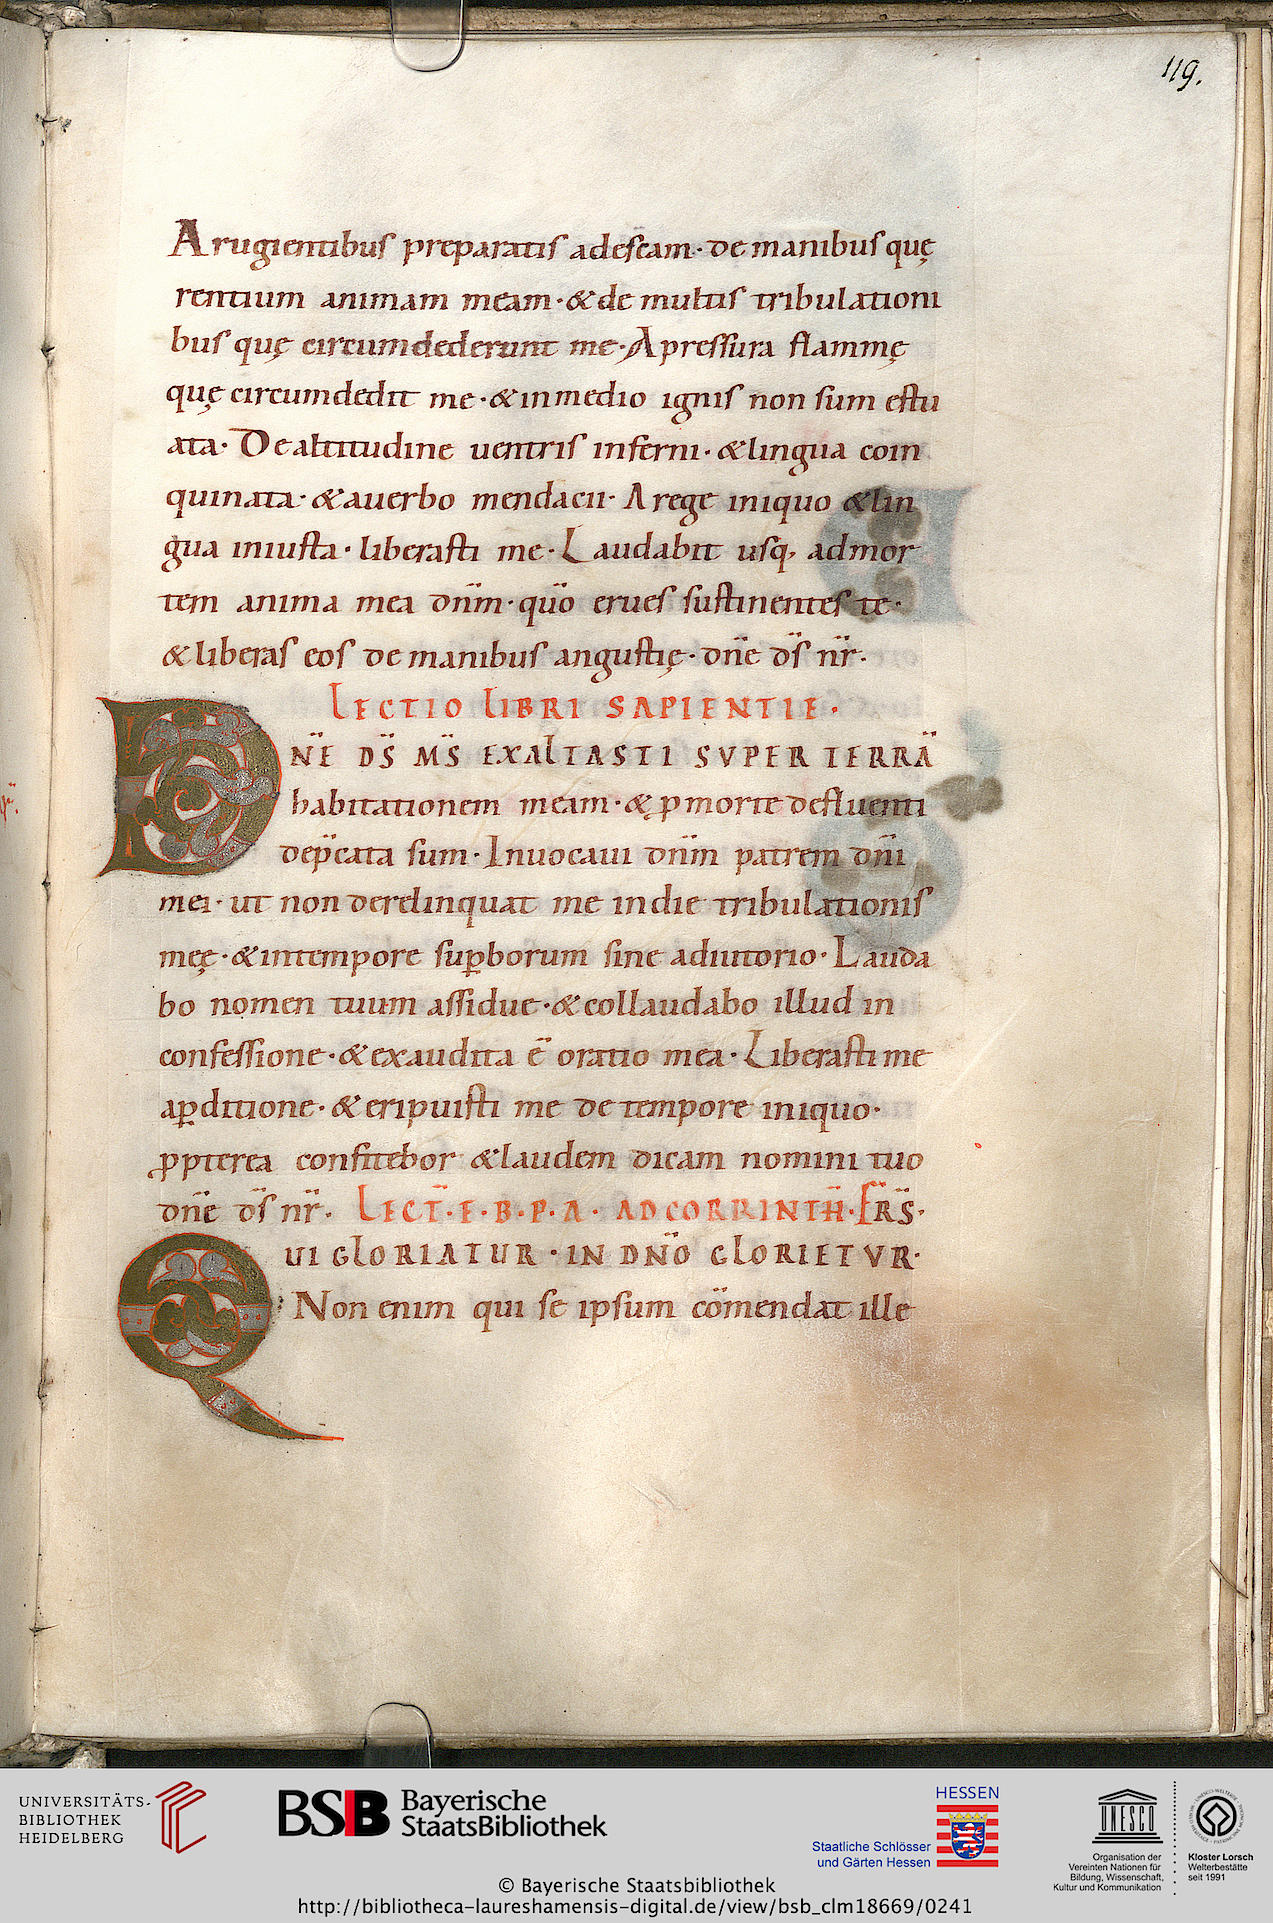 119.
A rugientibus preparatis adescam · de manibus quę
rentium animam meam · & de multis tribulationi
bus quę circumdederunt me · A pressura flammę
quę circumdedit me · & inmedio ignis non sum estu
ata · De altitudine uentris inferni · & lingua coin
quinata · & auerbo mendacii · A rege iniquo & lin
gua iniusta · liberasti me · Laudabit usq; admor
tem anima mea dn̄m · qn̄o erues sustinentes te ·
& liberas eos de manibus angustię · dn̄e d̄s nr̄ ·
LECTIO LIBRI SAPIENTIE ·
DN̄E D̄S M̄S EXALTASTI SVPER TERRĀ
habitationem meam · & ꝓ morte defluenti
dep̄cata sum · Inuocaui dn̄m patrem dn̄i
mei · ut non derelinquat me indie tribulationis
meę · & intempore suꝑborum sine adiutorio · Lauda
bo nomen tuum assidue · & collaudabo illud in
confessione · & exaudita ē oratio mea · Liberasti me
aꝑditione · & eripuisti me de tempore iniquo ·
ꝓpterea confitebor & laudem dicam nomini tuo
dn̄e d̄s nr̄ · LECT̄ · E · B · P · A · AD CORRINTH̄ · FR̄S ·
QUI GLORIATUR · IN DN̄O GLORIETVR ·
Non enim qui se ipsum cōmendat ille
UNIVERSITÄTS-
BIBLIOTHEK
HEIDELBERG
BSB Bayerische
StaatsBibliothek
HESSEN
Staatliche Schlösser
und Gärten Hessen
UNESCO
Organisation der
Vereinten Nationen für
Bildung, Wissenschaft,
Kultur und Kommunikation
Kloster Lorsch
Welterbestätte
seit 1991
© Bayerische Staatsbibliothek
http://bibliotheca-laureshamensis-digital.de/view/bsb_clm18669/0241